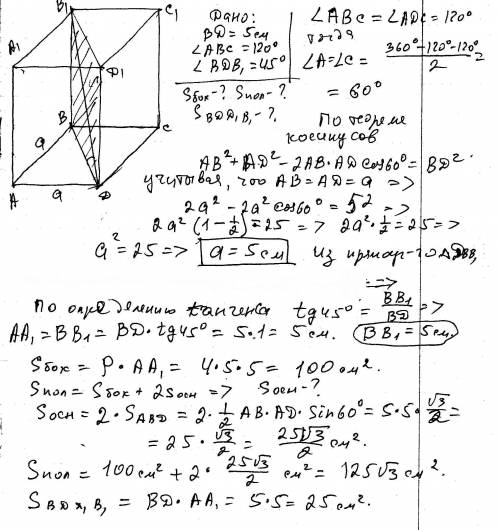 Дано:
BD = 5см
∠ABC = 120°
∠BDB₁ = 45°
Sбок-? Sпол-?
S BDD₁B₁ -?
∠ABC = ∠ADC = 120°
тогда
∠A = ∠C = (360° - 120° - 120°) / 2 =
= 60°
По теореме
косинусов
AB² + AD² - 2AB·AD cos60° = BD²
учитывая, что AB = AD = a =>
2a² - 2a² cos60° = 5² =>
2a² (1 - 1/2) = 25 => 2a²·1/2 = 25 =>
a² = 25 => a = 5 см
Из
По определению тангенса tg45° = BB₁/BD =>
AA₁ = BB₁ = BD·tg45° = 5·1 = 5 см. BB₁ = 5см.
Sбок = P·AA₁ = 4·5·5 = 100 см².
Sпол = Sбок + 2Sосн => Sосн-?
Sосн = 2·S ABD = 2·1/2 AB·AD·Sin60° = 5·5·√3/2 =
= 25·√3/2 = 25√3/2 см².
Sпол = 100см² + 2·25√3/2 см² = 125√3 см².
S BDD₁B₁ = BD·AA₁ = 5·5 = 25 см².
B₁
C₁
A₁
D₁
B
C
a
A
a
D